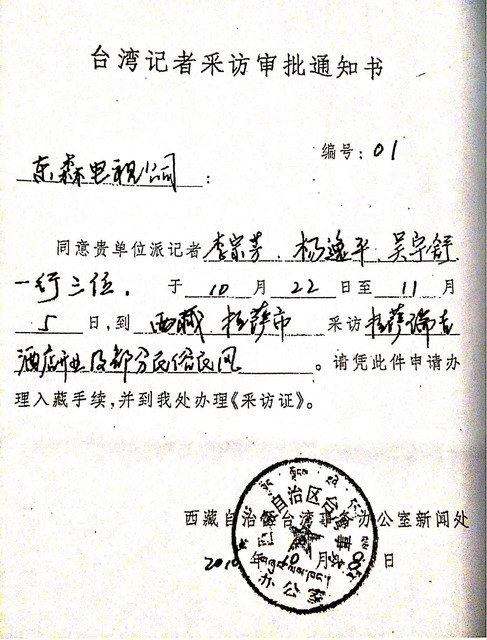 台湾记者采访审批通知书
编号：01
东森电视公司：
同意贵单位派记者李宗芳、杨逸平、吴宇舒
一行三位，于10月22日至11月
5日，到西藏、拉萨市采访拉萨瑞吉
酒店开业及部分民俗民风。请凭此件申请办
理入藏手续，并到我处办理《采访证》。
西藏自治区台湾事务办公室新闻处
2010年10月8日